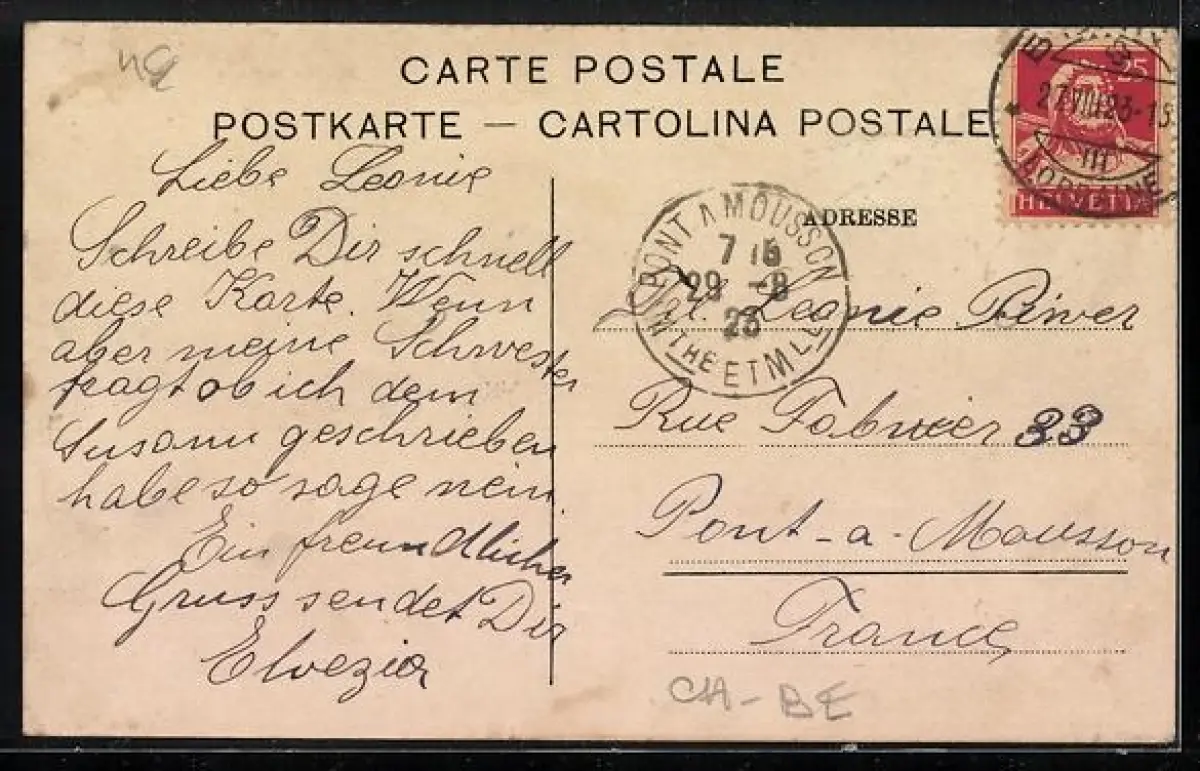 CARTE POSTALE
POSTKARTE — CARTOLINA POSTALE
Liebe Leonie
Schreibe Dir schnell
diese Karte. Wenn
aber meine Schwester
fragt ob ich dem
Susann geschrieben
habe so sage nein.
Ein freundlicher
Gruss sendet Dir
Elvezia
25
27.VIII.23-13
III
HELVETIA
ADRESSE
PONT A MOUSSON
7 15
29 -8
23
MTHE ET MLLE
Leonie Biwer
Rue Fabvier 33
Pont-a-Mousson
France
CH-BE